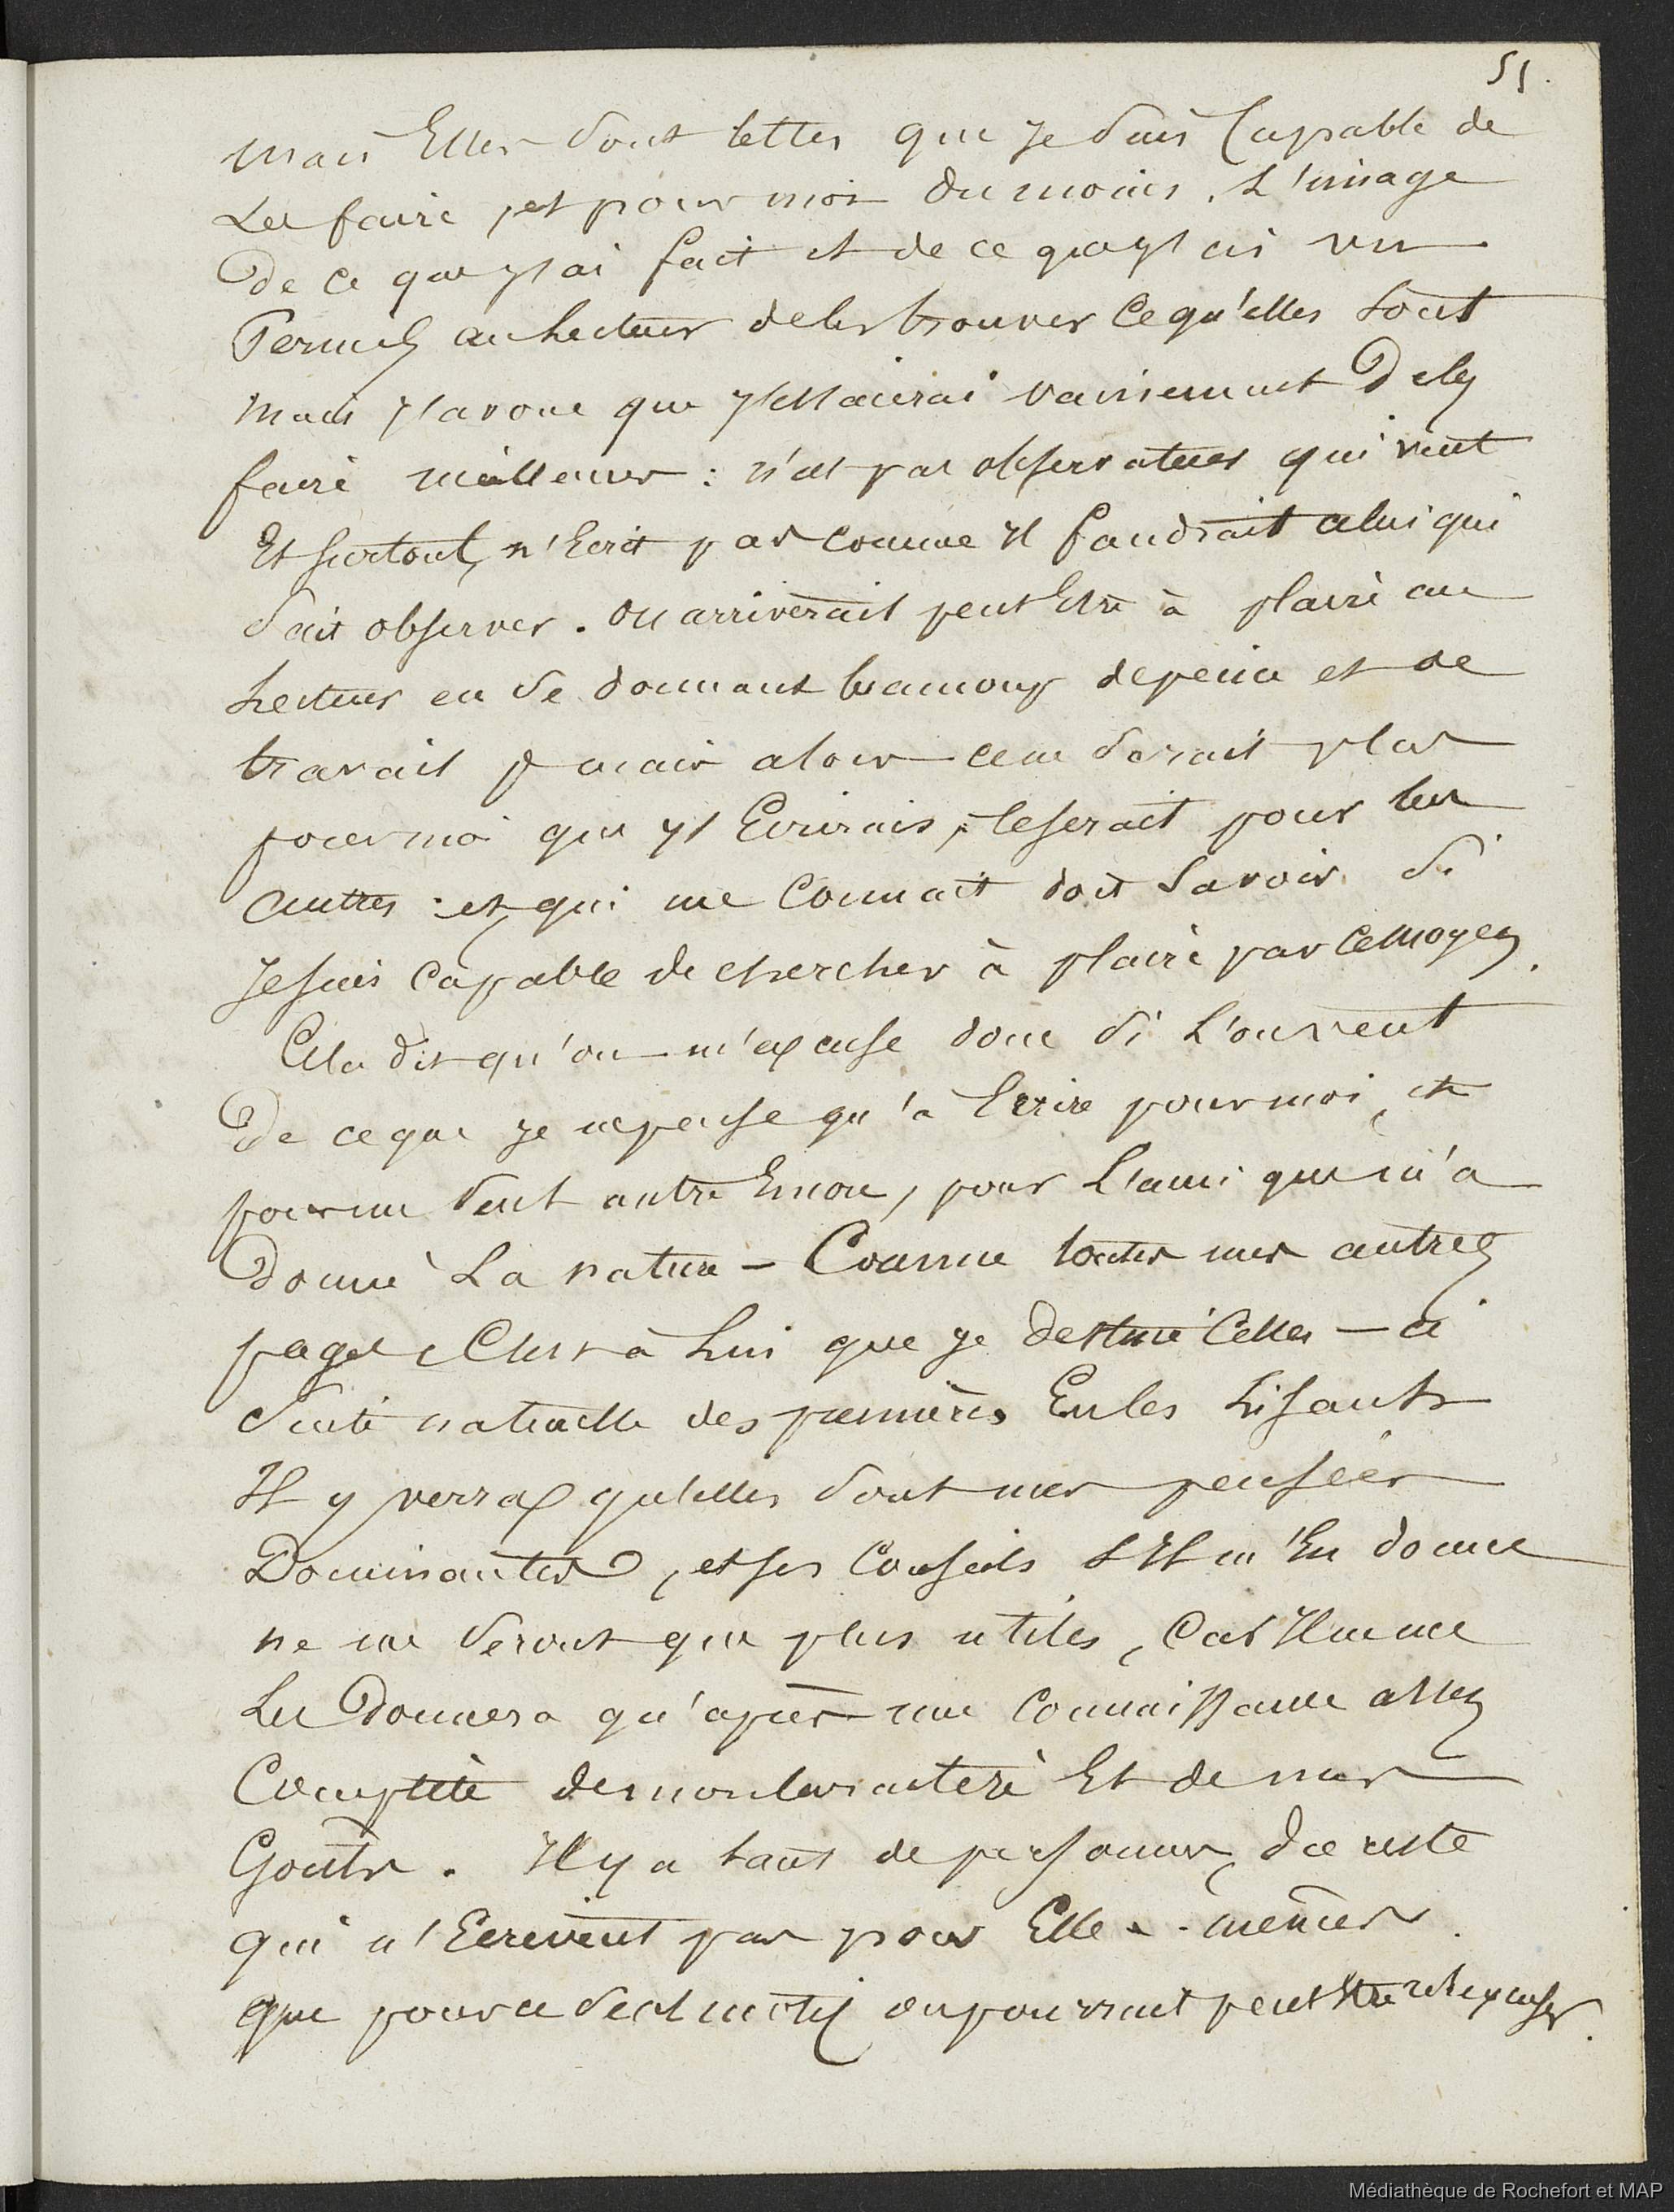 51.
Mais Elles sont telles que Je suis Capable de
Les faire, et pour moi du moins, L'image
De ce que J'ai fait et de ce que J'ai vu
Permis au Lecteur de les trouver ce qu'elles sont
Mais J'avoue que J'essaierai vainement De les
faire meilleures : n'est pas observateur qui veut
Et surtout, n'Ecrit pas comme Il faudrait celui qui
sait observer. On arriverait peut Etre à plaire au
Lecteur en se donnant beaucoup de peine et de
travail, mais alors ce ne serait plus
pour moi que J'Ecrirais, ce serait pour les
autres : et qui me Connait doit Savoir si
Je suis Capable de chercher à plaire par ce moyen.
Cela dit qu'on m'excuse donc si L'on veut
De ce que Je ne pense qu'à Ecrire pour moi, et
pour un seul autre Encore, pour L'ami que m'a
Donné La nature – Comme toutes mes autres
pages, C'est à Lui que Je destine Celles – ci
suite naturelle des premières En les Lisant
Il y verra qu'elles sont mes pensées
Dominantes, et ses Conseils S'Il m'En donne
ne me seront que plus utiles, Car Il ne me
Les Donnera qu'après une Connaissance assez
Complète de mon Caractère Et de mes
Goûts. Il y a tant de personnes, du reste
qui n'Ecrivent pas pour Elles-mêmes
que pour ce seul motif on pourrait peut Etre m'Excuser.
Médiathèque de Rochefort et MAP